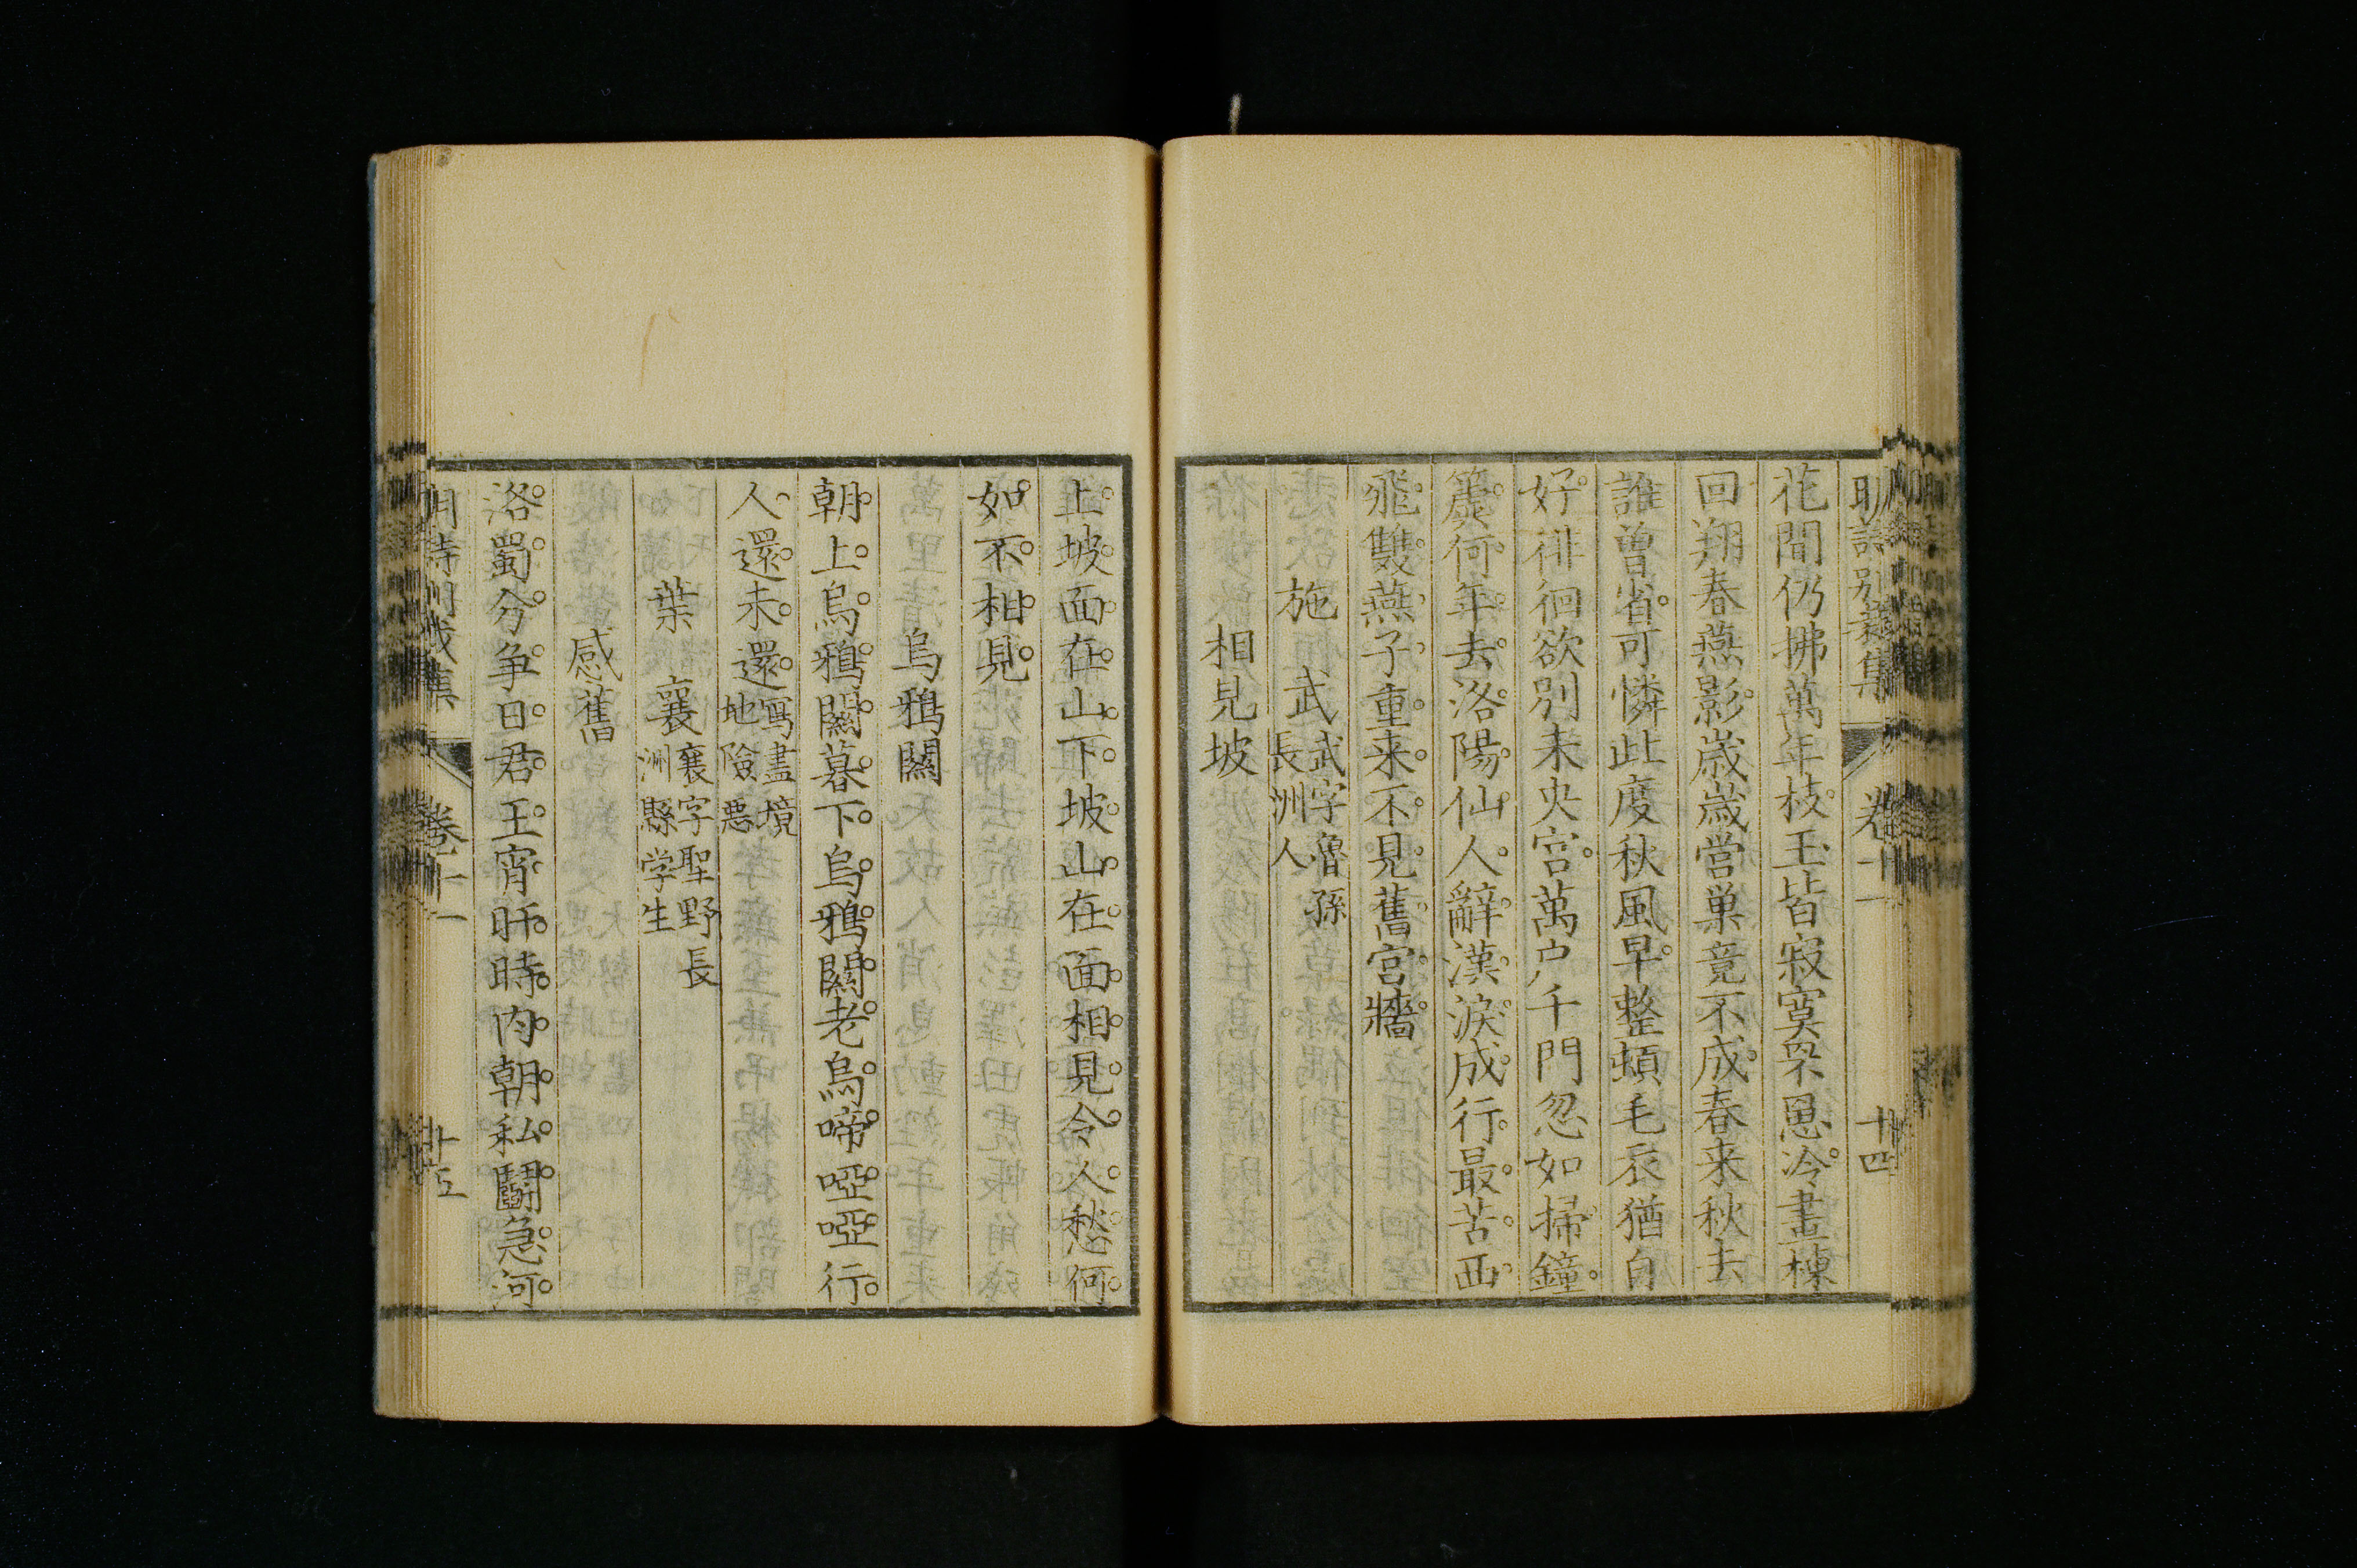 明詩別裁集 卷十一 十四
花間仍拂萬年枝玉皆寂寞罘罳冷畫棟
回翔春燕影歲歲營巢竟不成春来秋去
誰曾省可憐此度秋風早整頓毛衣猶自
好徘徊欲別未央宮萬户千門忽如掃鐘
簴何年去洛陽仙人辭漢淚成行最苦西
飛雙燕子重来不見舊宮牆
施 武 武字魯孫長洲人
相見坡
上坡面在山下坡山在面相見令人愁何
如不相見
烏鴉關
朝上烏鴉關暮下烏鴉關老烏啼啞啞行
人還未還 寫盡境地險惡
葉 襄 襄字聖野長洲縣学生
感舊
洛蜀分争日君王宵旰時内朝私鬭急河
明詩別裁集 卷十一 十五